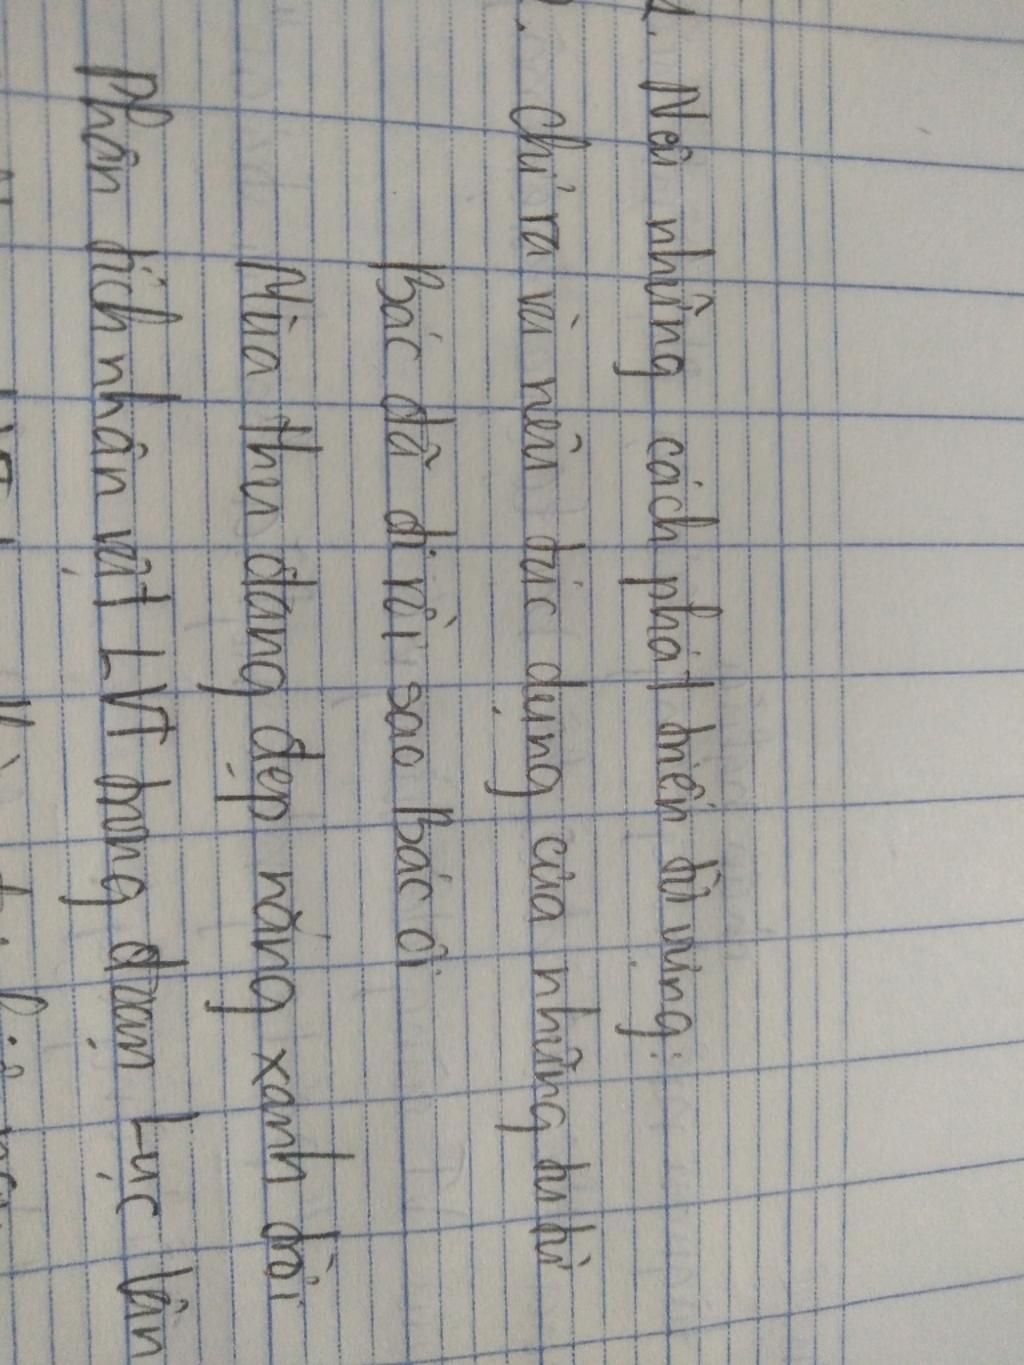 1. Nêu những cách phát triển từ vựng.
2. chỉ ra và nêu tác dụng của những tu từ
Bác đã đi rồi sao Bác ơi
Mùa thu đang đẹp nắng xanh trời
Phân tích nhân vật LVT trong đoạn Lục Vân